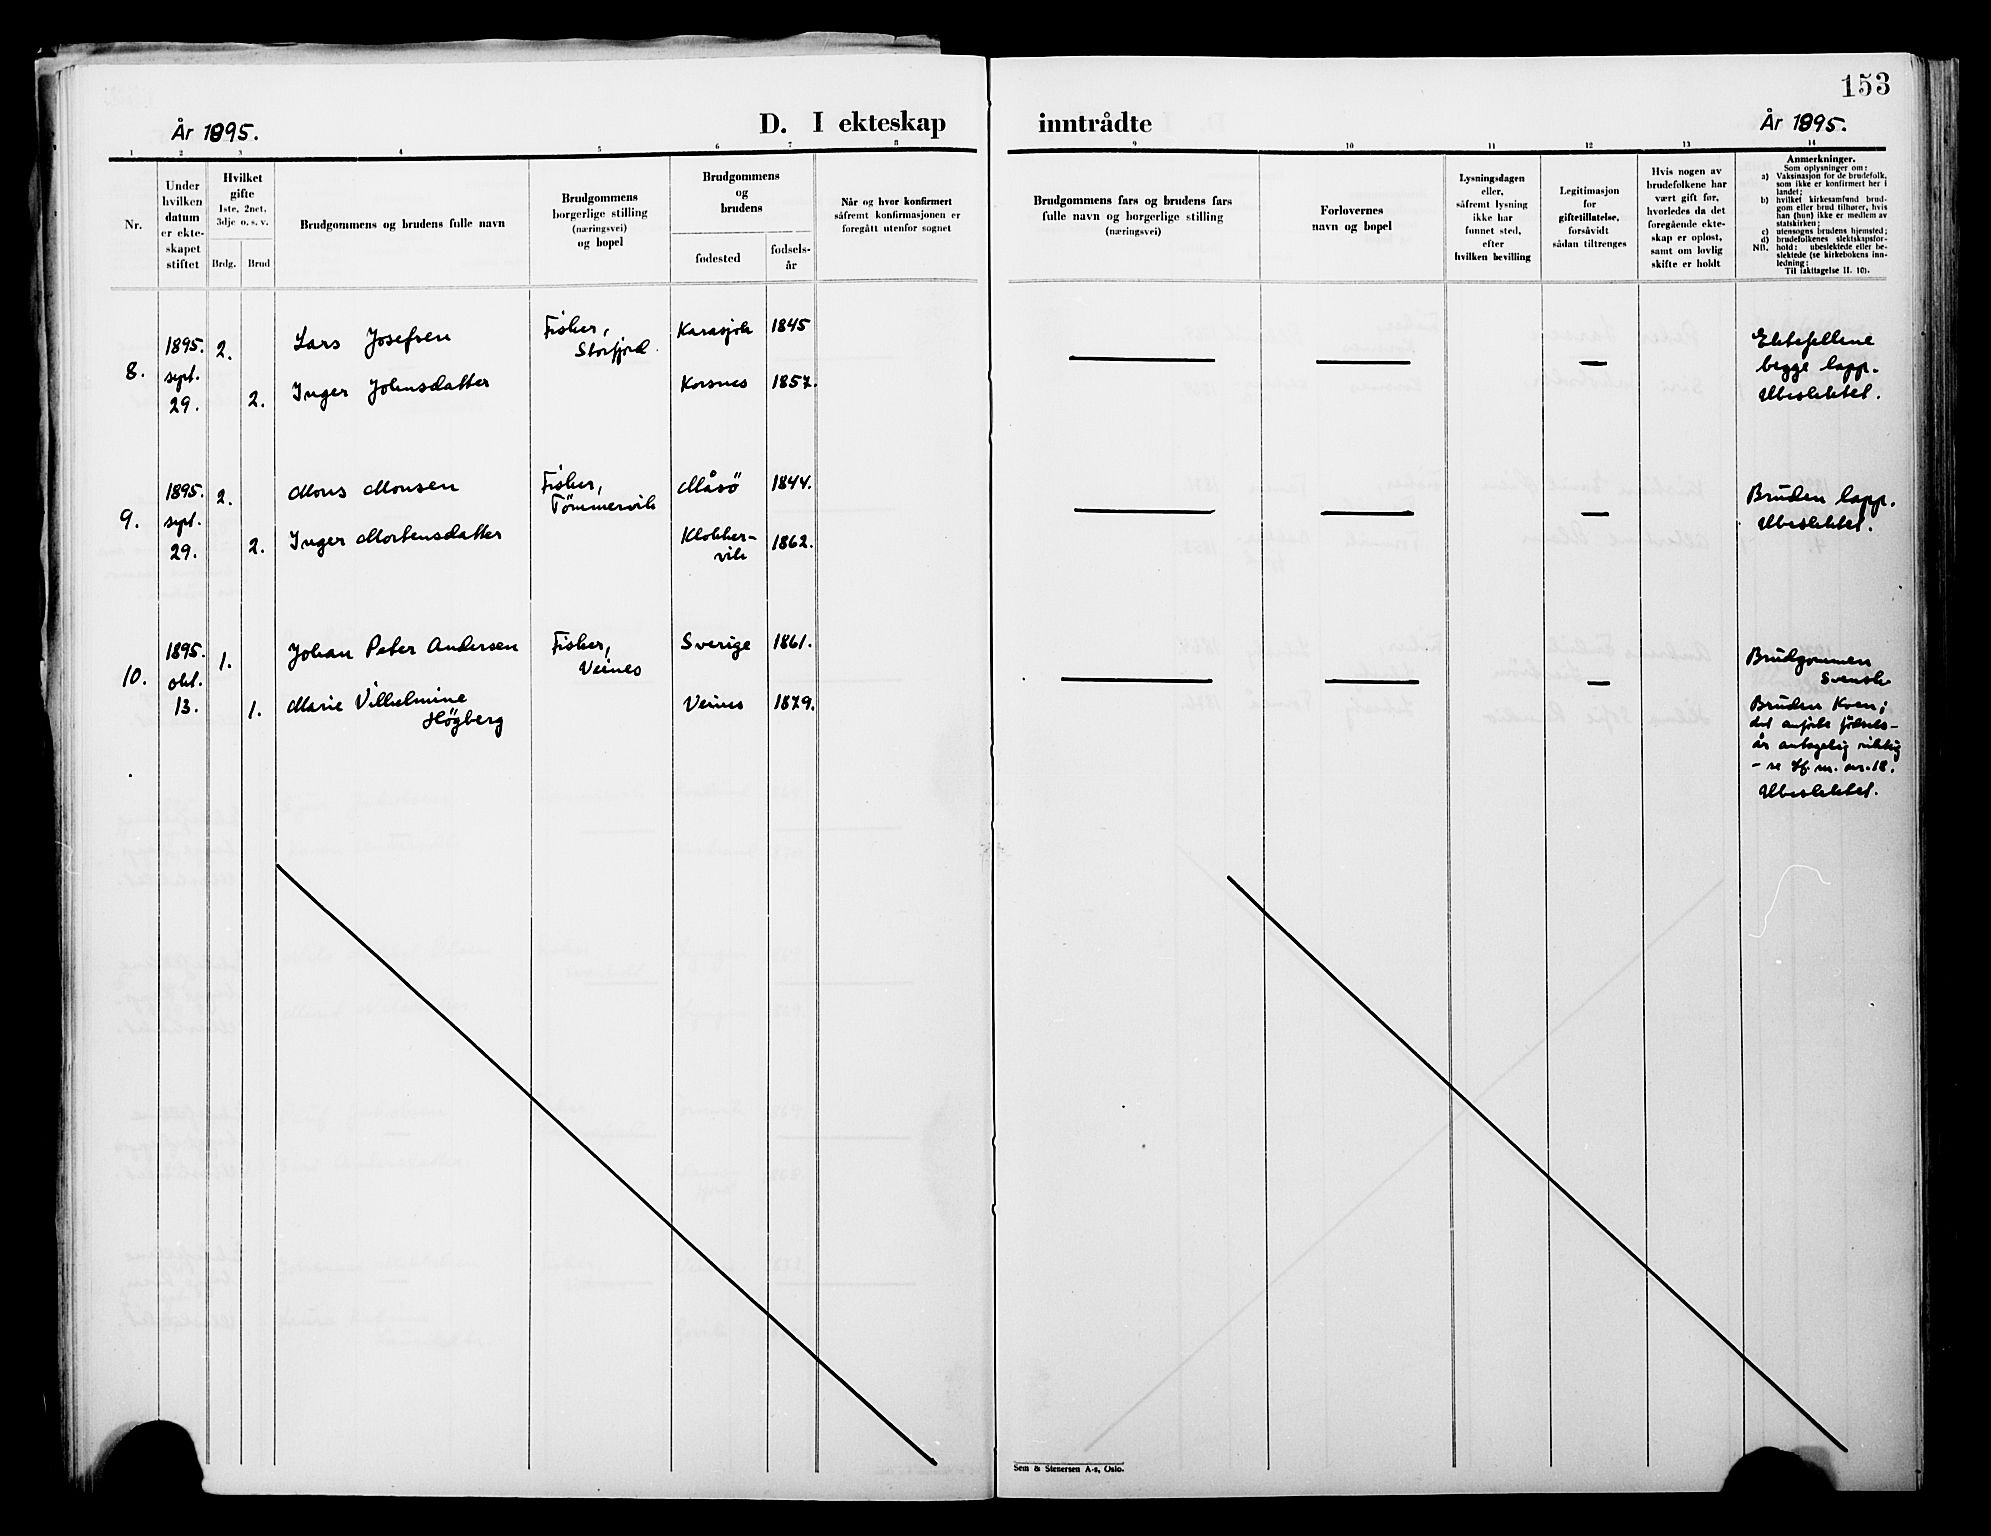 153
År 1895.
D. I ekteskap inntrådte
År 1895.
1 2 3 4 5 6 7 8 9 10 11 12 13 14
Nr.
Under
hvilken
datum
er ekte-
skapet
stiftet
Hvilket
gifte
1ste, 2net,
3dje o. s. v.
Brdg. Brud
Brudgommens og brudens fulle navn
Brudgommens
borgerlige stilling
(næringsvei)
og bopel
Brudgommens
og
brudens
fødested
fødsels-
år
Når og hvor konfirmert
såfremt konfirmasjonen er
foregått utenfor sognet
Brudgommens fars og brudens fars
fulle navn og borgerlige stilling
(næringsvei)
Forlovernes
navn og bopel
Lysningsdagen
eller,
såfremt lysning
ikke har
funnet sted,
efter
hvilken bevilling
Legitimasjon
for
giftetillatelse,
forsåvidt
sådan tiltrenges
Hvis nogen av
brudefolkene har
vært gift før,
hvorledes da det
foregående ekte-
skap er opløst,
samt om lovlig
skifte er holdt
Anmerkninger.
Som oplysninger om:
a) Vaksinasjon for de brudefolk,
som ikke er konfirmert her i
landet;
b) hvilket kirkesamfund brud-
gom eller brud tilhører, hvis
han (hun) ikke er medlem av
statskirken;
c) utensogns brudens hjemsted;
d) brudefolkenes slektskapsfor-
NB. hold: ubeslektede eller be-
slektede (se kirkebokens inn-
ledning:
Til iakttagelse II. 10).
8.
1895.
sept.
29.
2.
2.
Lars Josefsen
Inger Johnsdatter
Fisker,
Storfjord.
Karasjok 1845
Korsnes 1857.
Ektefellene
begge lapp.
Ubeslektet.
9.
1895.
sept.
29.
2.
2.
Mons Monsen
Inger Mortensdatter
Fisker,
Tømmervik
Måsö 1844.
Klokker-
vik 1862.
Bruden lapp.
Ubeslektet.
10.
1895.
okt.
13.
1.
1.
Johan Peter Andersen
Marie Vilhelmine
Högberg
Fisker,
Veines
Sverige 1861.
Veines 1879.
Brudgommen
Svensk
Bruden Kven;
det anførte fødsels-
år antagelig riktig
- se kf. nr. 18.
Ubeslektet.
Sem & Stenersen A-s, Oslo.